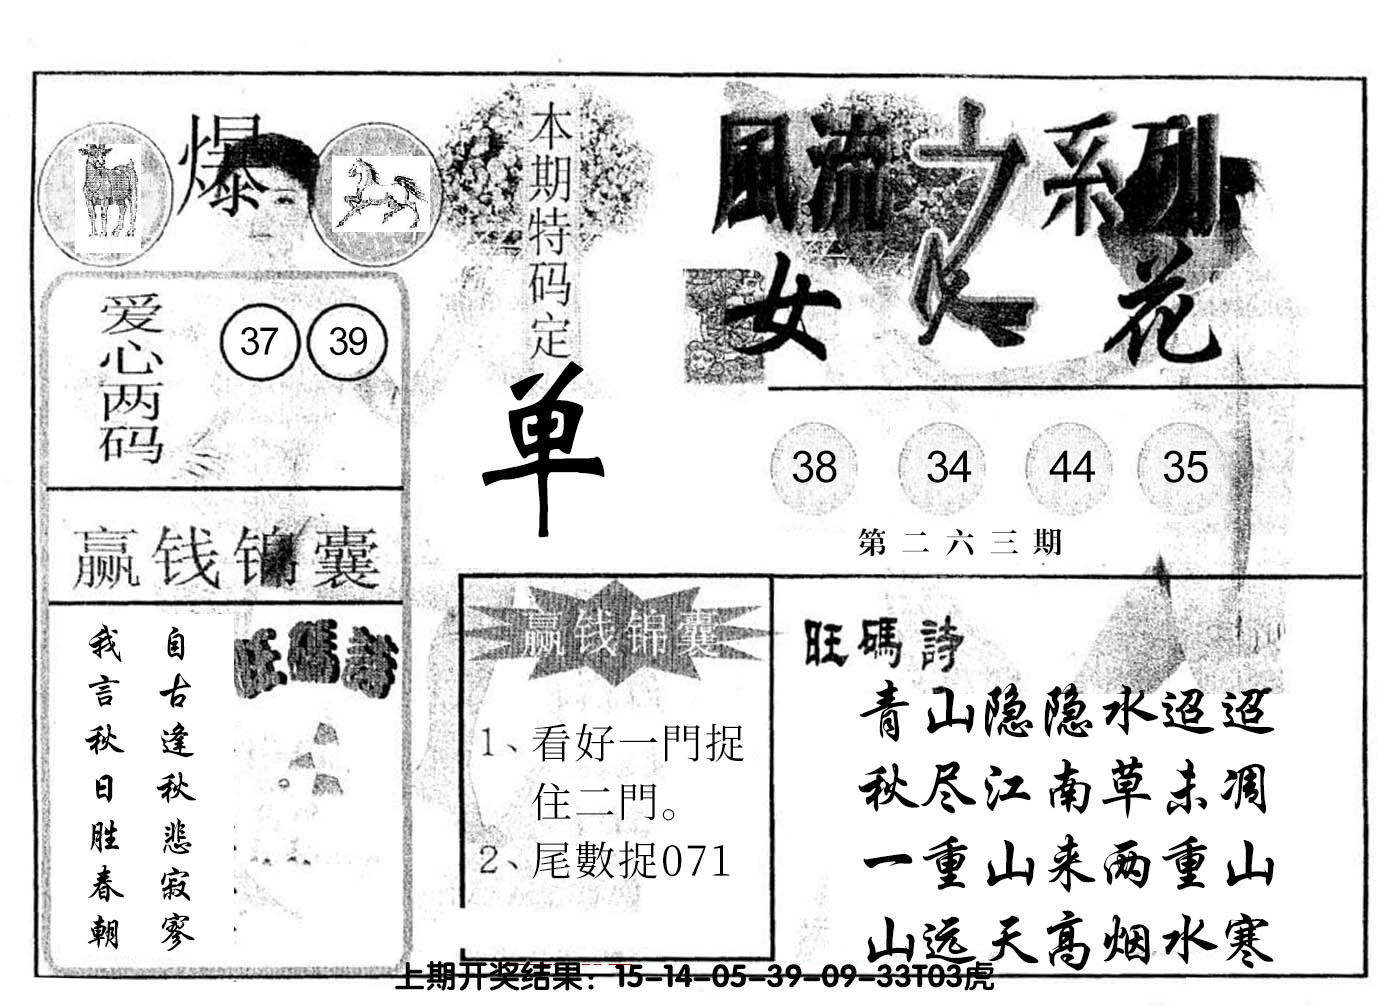 爆
本期特码定
单
風流之系列
女人花
爱心两码
37 39
38 34 44 35
第二六三期
赢钱锦囊
旺碼詩
自古逢秋悲寂寥
我言秋日胜春朝
赢钱锦囊
1、看好一門捉
住二門。
2、尾數捉071
旺碼詩
青山隐隐水迢迢
秋尽江南草未凋
一重山来两重山
山远天高烟水寒
上期开奖结果：15-14-05-39-09-33T03虎